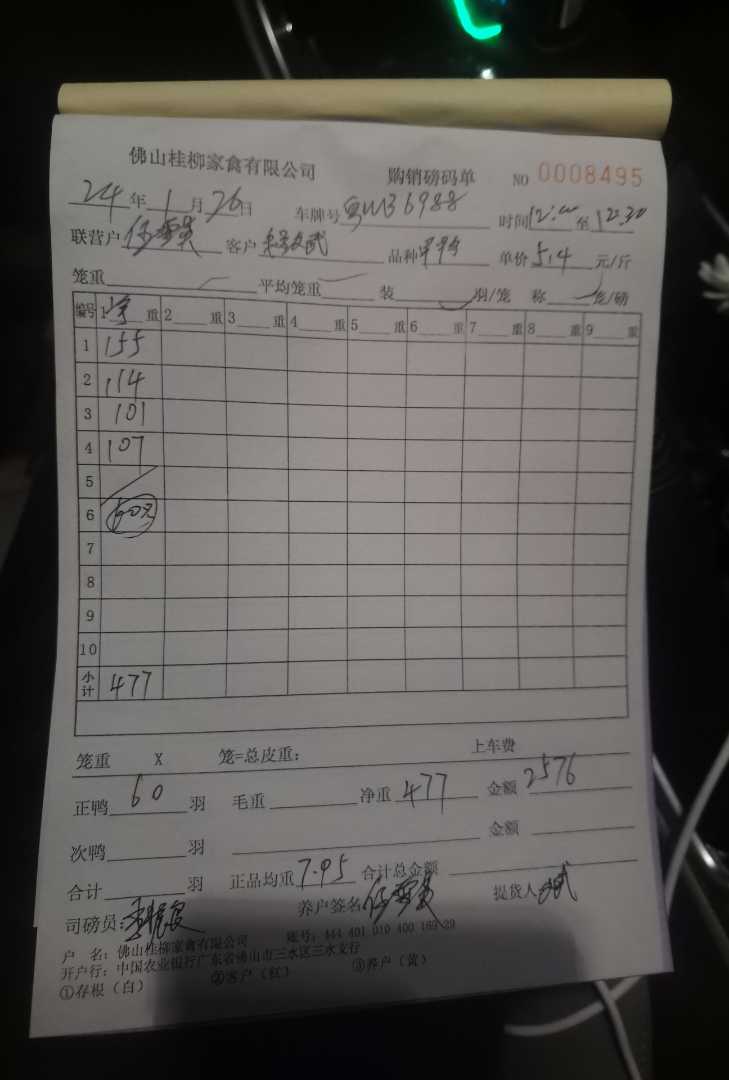 佛山桂柳家禽有限公司 购销磅码单 NO 0008495
24年1月26日 车牌号 36988 时间12:00至12:30
联营户 客户 品种 单价5.4元/斤
笼重 平均笼重 装 羽/笼 称 笼/磅
编号 1 重 2 重 3 重 4 重 5 重 6 重 7 重 8 重 9 重
1 155
2 114
3 101
4 107
5
6 60只
7
8
9
10
小计 477
笼重 X 笼=总皮重: 上车费
正鸭60羽 毛重 净重477 金额2576
次鸭 羽 金额
合计 羽 正品均重7.95 合计总金额
司磅员: 养户签名 提货人
户 名: 佛山桂柳家禽有限公司 账号: 444 401 010 400 169 29
开户行: 中国农业银行广东省佛山市三水区三水支行
①存根(白) ②客户(红) ③养户(黄)